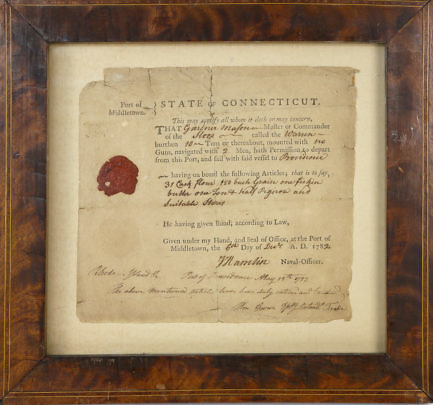 Port of
Middletown.
STATE OF CONNECTICUT.
This may certify all whom it doth or may concern,
THAT Master or Commander
of the Sloop called the Warren
burthen 10 Tons or thereabout, mounted with no
Guns, navigated with 2 Men, hath Permission to depart
from this Port, and sail with said vessel to Providence
having on board the following Articles; that is to say,
31 Cask flour 150 bush Grain one firkin
butter one Ton & half and
Suitable Stores
He having given Bond, according to Law,
Given under my Hand, and Seal of Office, at the Port of
Middletown, the Day of A. D. 1782
Hamlin Naval-Officer.
Port of Providence May
The above mentioned articles have been duly entered and landed